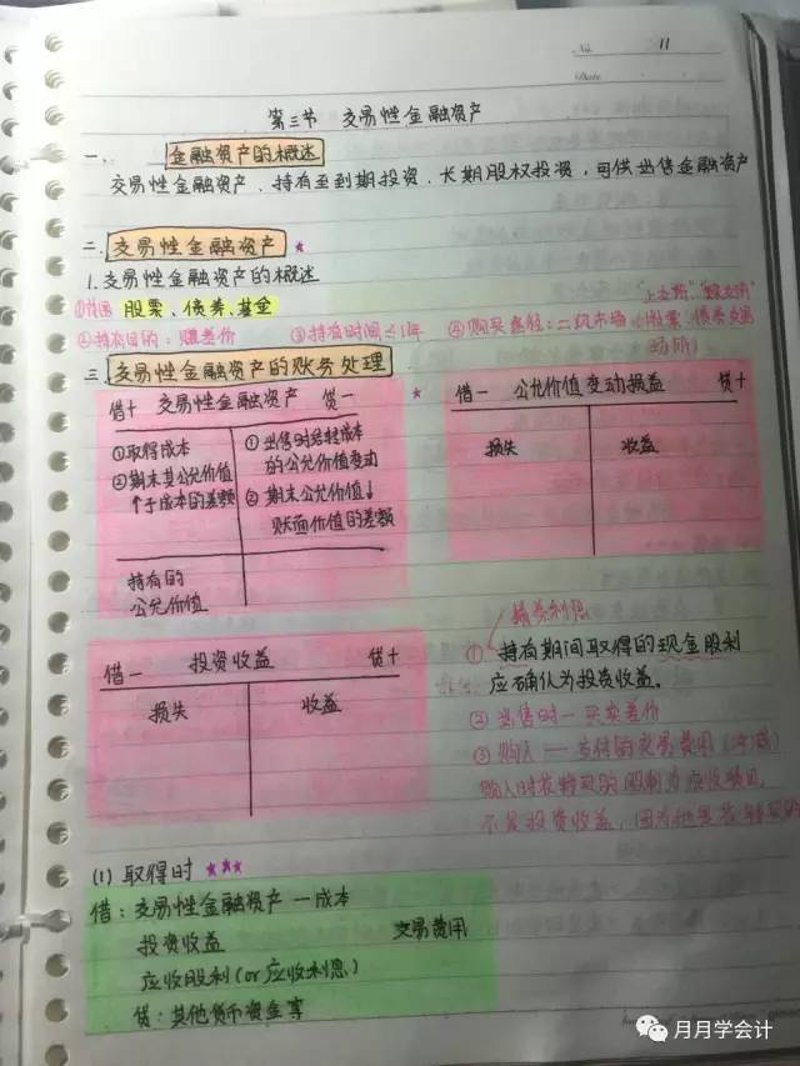 No. 11
Date
第三节 交易性金融资产
一、 金融资产的概述
交易性金融资产、持有至到期投资、长期股权投资,可供出售金融资产
二、交易性金融资产 ★
1.交易性金融资产的概述
①范围 股票、债券、基金
②持有目的:赚差价 ③持有时间≤1年 ④购买途径:二级市场
三、交易性金融资产的账务处理
借+ 交易性金融资产 贷一
①取得成本
②期末其公允价值
↑于成本的差额
①出售时结转成本
的公允价值变动
②期末公允价值↓
账面价值的差额
持有的
公允价值
★
借一 公允价值变动损益 贷+
损失 收益
借一 投资收益 贷+
损失 收益
债券利息
①持有期间取得的现金股利
应确认为投资收益。
②出售时一买卖差价
③购入一支付的交易费用(冲减)
不是投资收益,因为
(1)取得时 ★★★
借:交易性金融资产一成本
投资收益 交易费用
应收股利(or应收利息)
贷:其他货币资金等
月月学会计